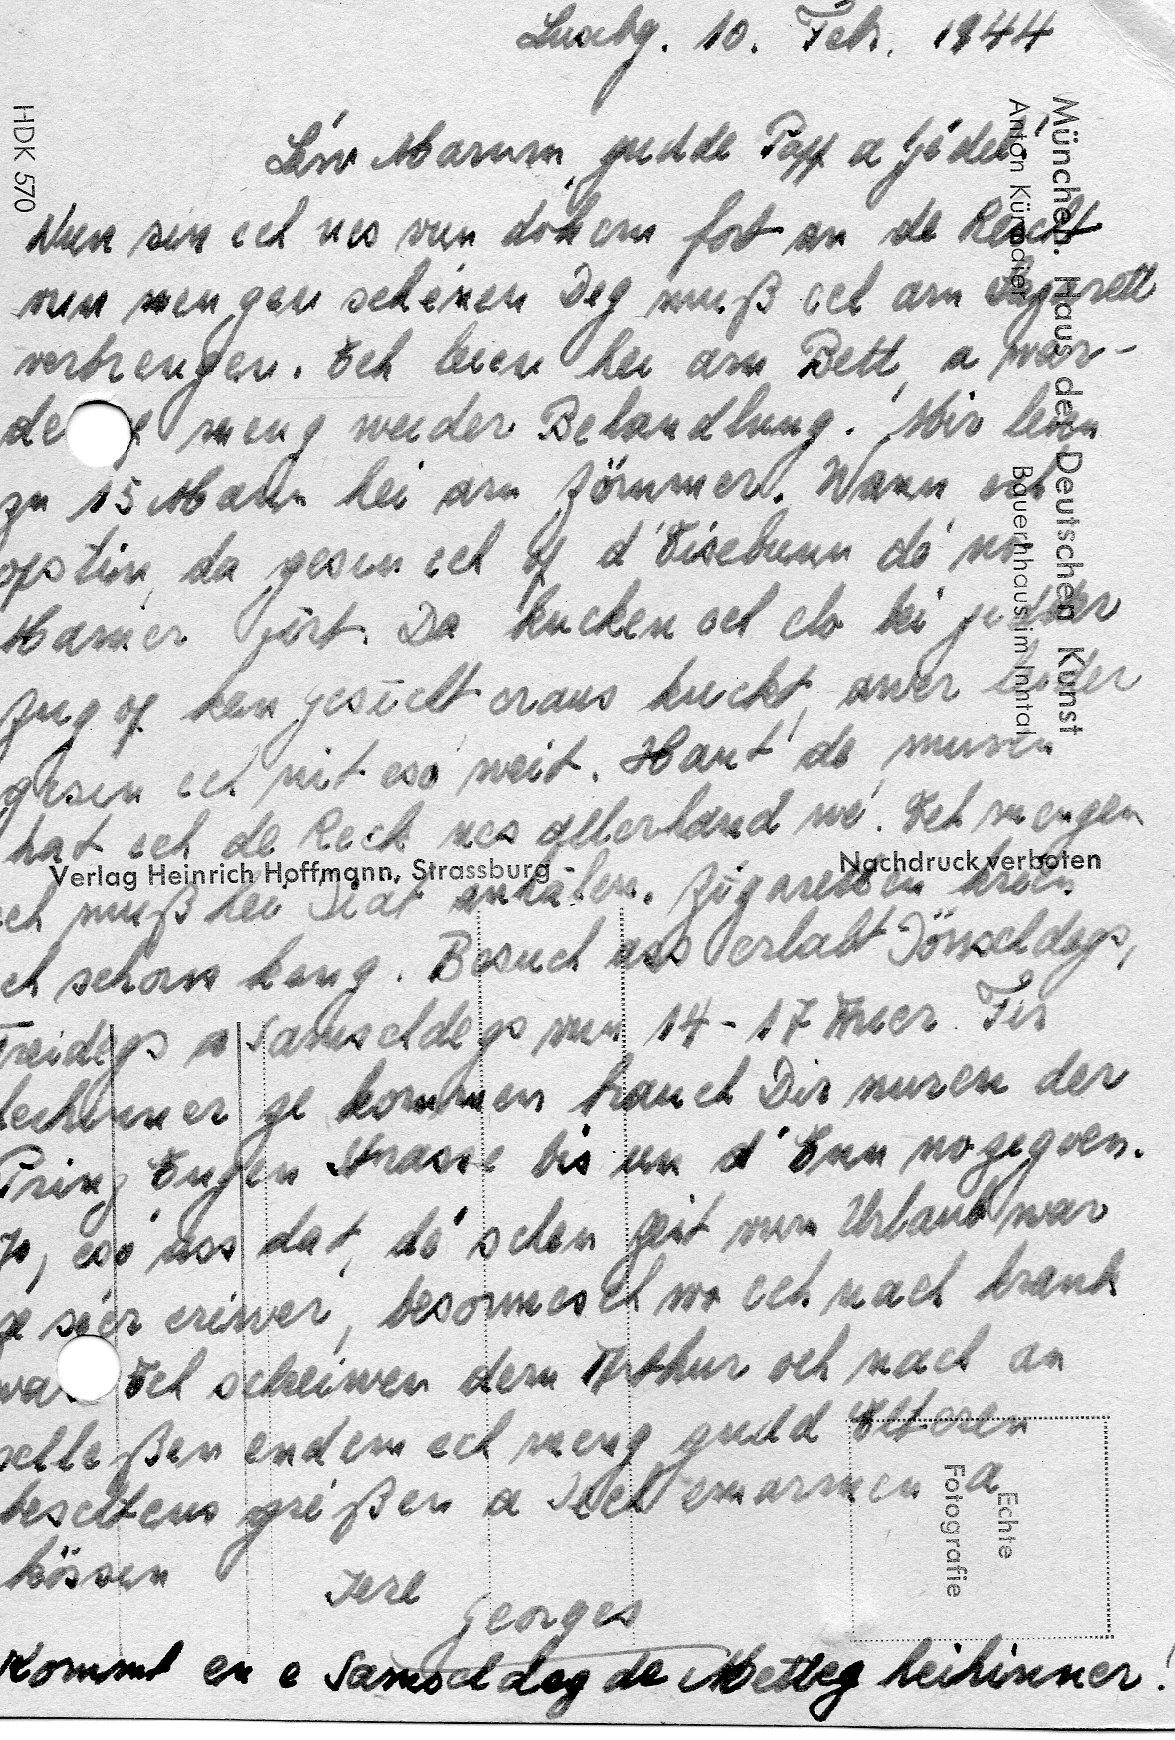 Luxbg. 10. Feb. 1944
Léiw Mamm, gudde Papp a Jédel!
Nun sin ech nes vun dohém fort an de Rescht
vun mengen schéinen Deg muß ech am Lazarett
verbrengen. Ech leien hei am Bett, a war-
de meng weider Behandlung. Mir leien
zu 15 Mann hei am Zömmer. Wann ech
opstin, da gesin ech op d'Eisebunn dé no
Mamer fiirt. Da kucken ech elo bei jidder
Zug op ken Gesicht eraus kuckt, awer leider
gesin ech nit esó weit. Haut de muren
hat ech de Reck nes allerhand wé. Ech mengen
ech muß hei Diät anhalen. Zigaretten kréien
ech schonn keng. Besuch ass erlabt Dönschdegs,
Freidegs a Samschdegs vun 14-17 Auer. Fir
heihinner ze kommen brauch Dir nuren der
Prinz Eugen Strasse bis un d'Enn nozegoen.
Jo, esó ass dat, dé schen Zeit vum Urlaub war
ze séier eriwer, besonnesch wo ech nach krank
war. Ech schreiwen dem Arthur och nach an
schléßen endem ech meng gudd Elteren
beschtens gréßen a Iech emarmen a
kössen
Iere Georges
Kommt en e Samschdeg de Metteg heihinner!
HDK 570
München. Haus der Deutschen Kunst
Anton Künzdler
Bauernhaus im Inntal
Verlag Heinrich Hoffmann, Strassburg
Nachdruck verboten
Echte
Fotografie